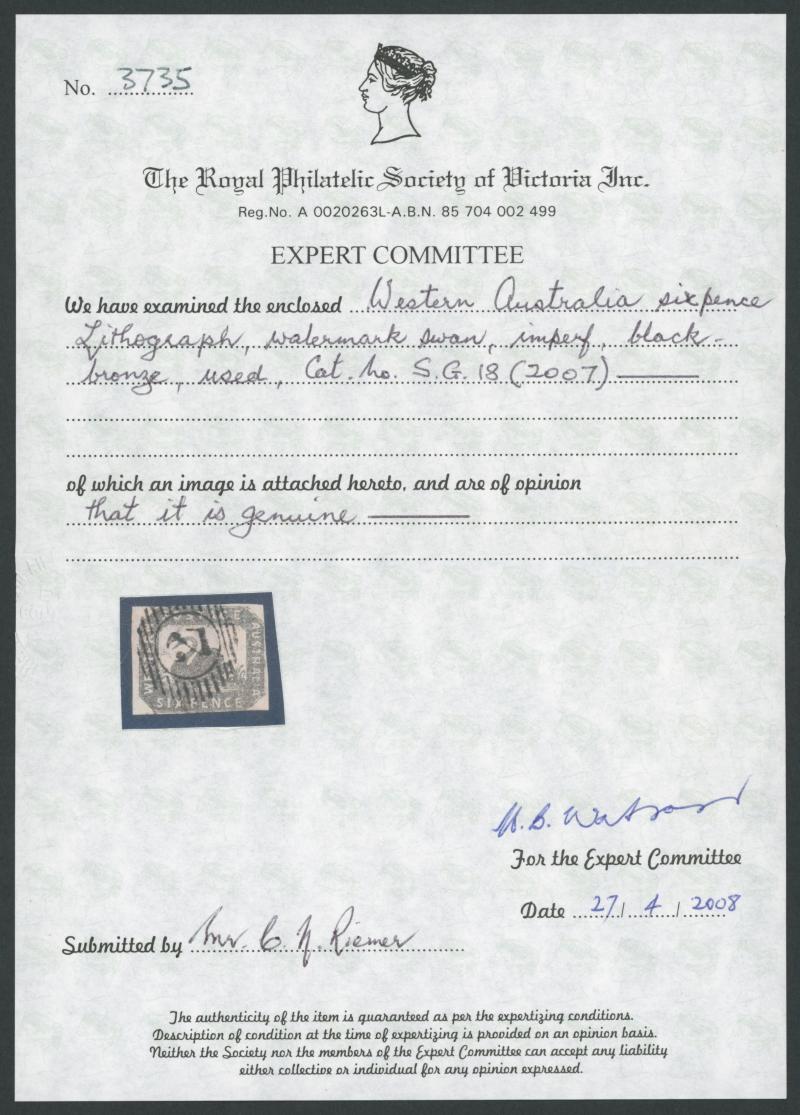 No. 3735
The Royal Philatelic Society of Victoria Inc.
Reg.No. A 0020263L-A.B.N. 85 704 002 499
EXPERT COMMITTEE
We have examined the enclosed Western Australia sixpence
Lithograph, watermark swan, imperf, black-
bronze, used, Cat. No. S.G. 18 (2007)
of which an image is attached hereto, and are of opinion
that it is genuine
AUSTRALIA
SIX PENCE
For the Expert Committee
Date 27/ 4 / 2008
Submitted by Mr. C. N. Riemer
The authenticity of the item is guaranteed as per the expertizing conditions.
Description of condition at the time of expertizing is provided on an opinion basis.
Neither the Society nor the members of the Expert Committee can accept any liability
either collective or individual for any opinion expressed.